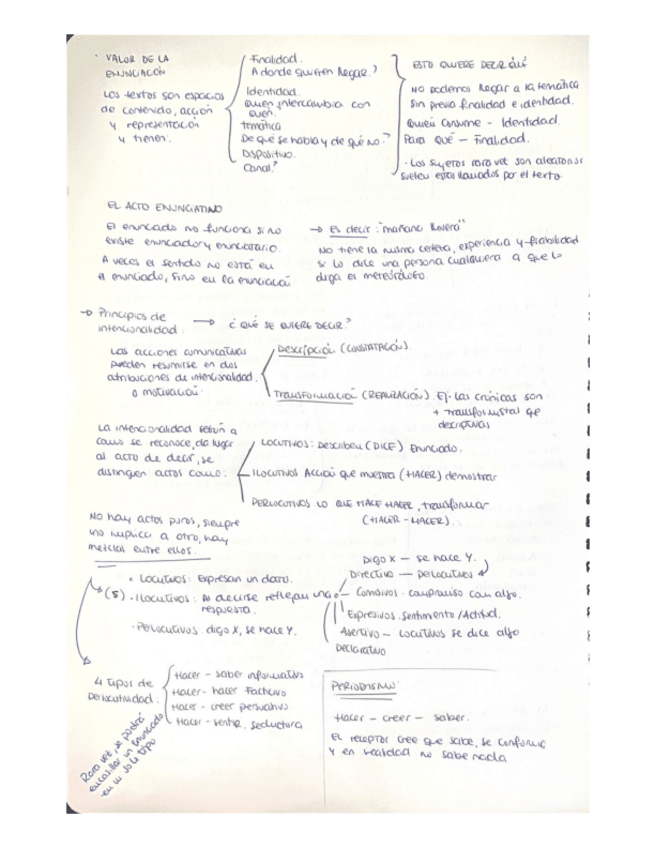 · VALOR DE LA
ENUNCIACIÓN
Los textos son espacios
de contenido, acción
y representación
y tienen:
Finalidad.
A donde quieren llegar?
Identidad.
Quien intercambia con
quien.
temática
De qué se habla y de qué no?
Dispositivo.
Canal?
ESTO QUIERE DECIR QUE
NO podemos llegar a la temática
sin previa finalidad e identidad.
Quien consume - Identidad.
Para qué - Finalidad.
· Los sujetos rara vez son aleatorios
suelen estar llamados por el texto
EL ACTO ENUNCIATIVO
El enunciado no funciona si no
existe enunciador y enunciatario.
A veces el sentido no está en
el enunciado, sino en la enunciación
→ Es decir: "mañana lloverá"
No tiene la misma certeza, experiencia y fiabilidad
si lo dice una persona cualquiera a que lo
diga el meteorólogo
→ Principios de
intencionalidad → ¿QUÉ SE QUIERE DECIR?
Las acciones comunicativas
pueden resumirse en dos
atribuciones de intencionalidad
o motivación.
Descripción (CONSTATACIÓN)
TRANSFORMACIÓN (REALIZACIÓN). Ej: Las crónicas son
+ que
descriptivas
La intencionalidad según a
como se reconoce, da lugar
al acto de decir, se
distinguen actos como:
LOCUTIVOS: Describen (DICE) Enunciado.
ILOCUTIVOS Acción que muestra (HACER) demostrar
PERLOCUTIVOS LO QUE HACE HACER, transformar
(HACER - HACER).
No hay actos puros, siempre
uno implica a otro, hay
mezclas entre ellos.
• Locutivos: Expresan un dato.
(5) · Ilocutivos: Al decirse reflejan una
respuesta.
· Perlocutivos: digo X, se hace Y.
Digo X — se hace Y.
Directivo — perlocutivos
Comisivos - compromiso con algo.
Expresivos. Sentimiento /Actitud.
Asertivo - Locutivos se dice algo
Declarativo
4 tipos de
Perlocutividad.
Hacer - saber informativo
Hacer - hacer Factivo
Hacer - creer persuasivo
Hacer - sentir seductora
Rara vez, se podrá
encasillar un enunciado
en un solo tipo
PERIODISMO:
Hacer - creer - saber.
EL receptor cree que sabe, se conforma
y en realidad no sabe nada